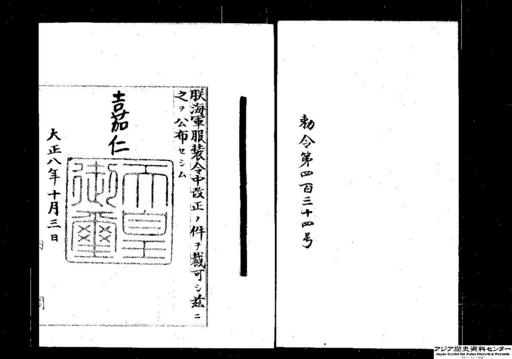 勅令第四百三十四号
朕海軍服装令中改正ノ件ヲ裁可シ茲ニ
之ヲ公布セシム
嘉仁
天皇
御璽
大正八年十月三日
アジア歴史資料センター
Japan Center for Asian Historical Records